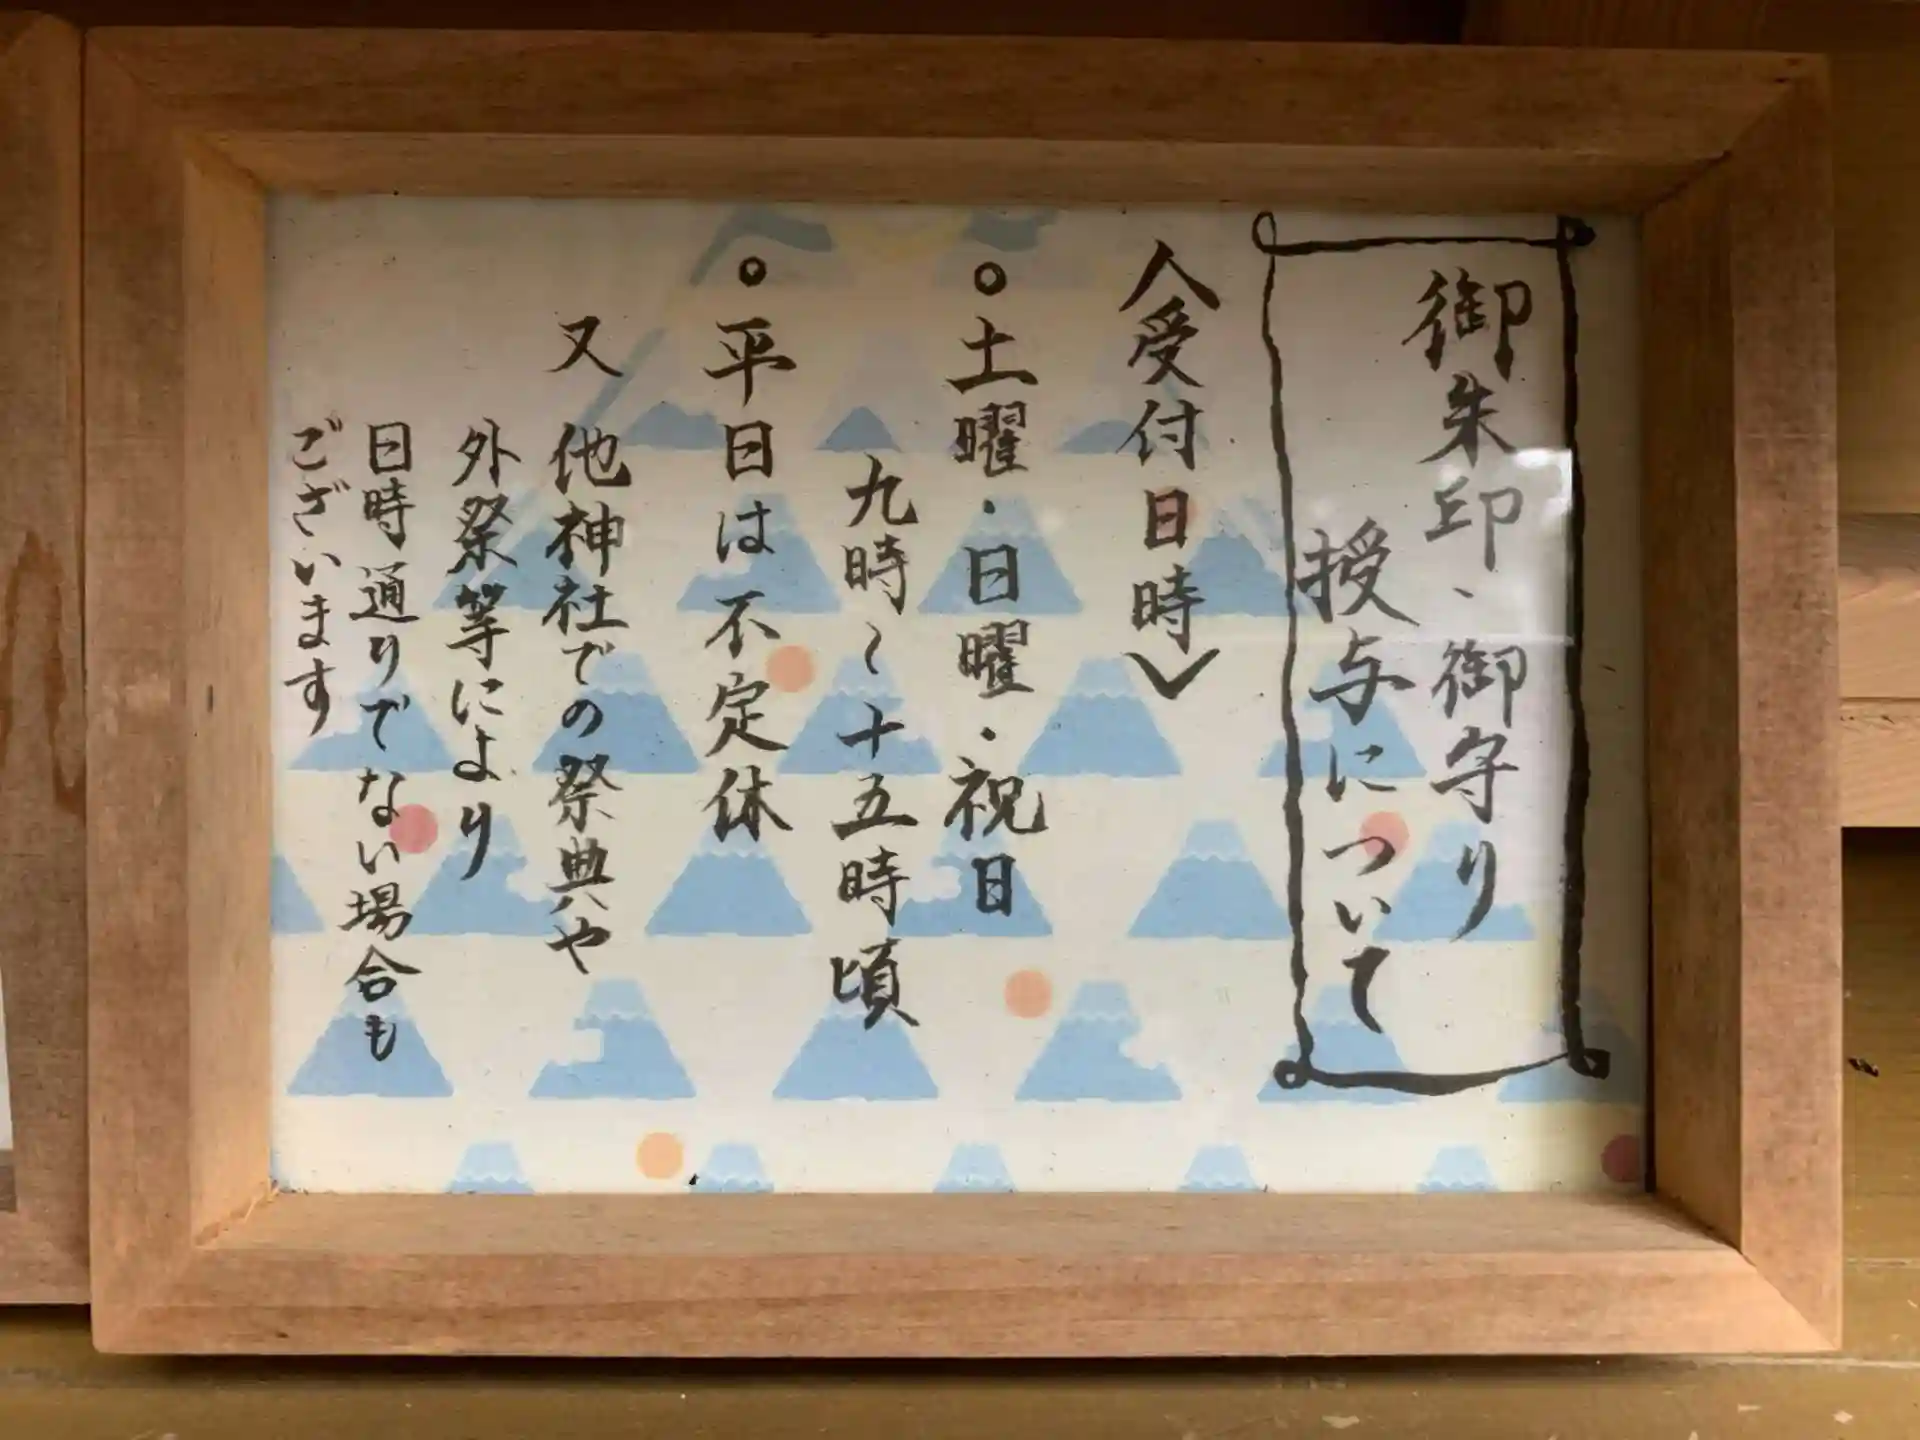 御朱印、御守り
授与について
〈受付日時〉
○土曜・日曜・祝日
九時～十五時頃
○平日は不定休
又 他神社での祭典や
外祭等により
日時通りでない場合も
ございます